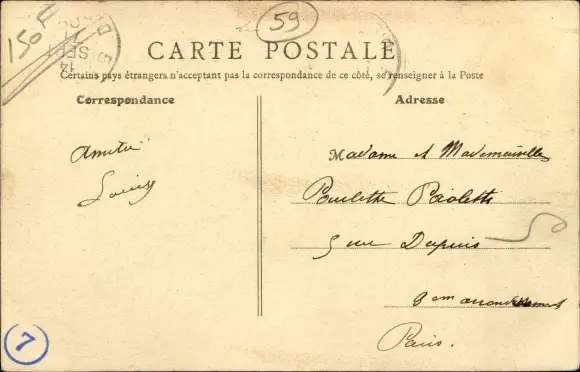 150F
59
14
SEPT
CARTE POSTALE
Certains pays étrangers n'acceptent pas la correspondance de ce côté, se renseigner à la Poste
Correspondance
Adresse
Amitié
Louis
Madame et Mademoiselle
Paulette Paoletti
5 rue Dupuis
3em arrondissement
Paris.
50
7